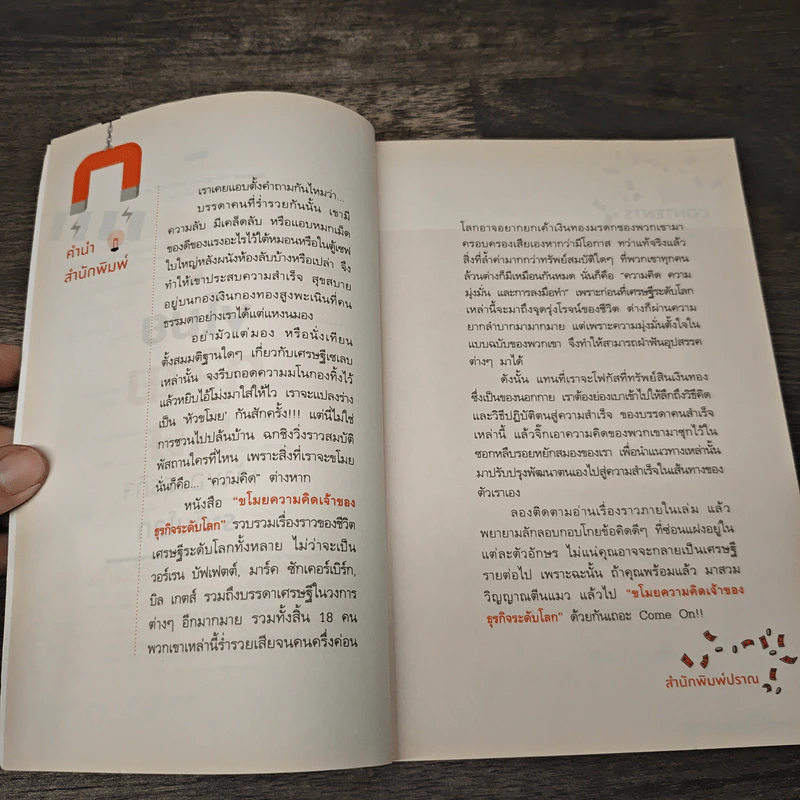 คำนำ
สำนักพิมพ์
เราเคยแอบตั้งคำถามกันไหมว่า...
บรรดาคนที่ร่ำรวยกันนั้น เขามี
ความลับ มีเคล็ดลับ หรือแอบหมกเม็ด
ของดีของแรงอะไรไว้ใต้หมอนหรือในตู้เซฟ
ใบใหญ่หลังผนังห้องลับบ้างหรือเปล่า จึง
ทำให้เขาประสบความสำเร็จ สุขสบาย
อยู่บนกองเงินกองทองสูงพะเนินที่คน
ธรรมดาอย่างเราได้แต่แหงนมอง
อย่ามัวแต่มอง หรือนั่งเทียน
ตั้งสมมติฐานใดๆ เกี่ยวกับเศรษฐีเซเลบ
เหล่านั้น จงรีบถอดความมโนกองทิ้งไว้
แล้วหยิบไอ้โม่งมาใส่ให้ไว เราจะแปลงร่าง
เป็น ‘หัวขโมย’ กันสักครั้ง!!! แต่นี่ไม่ใช่
การชวนไปปล้นบ้าน ฉกชิงวิ่งราวสมบัติ
พัสถานใครที่ไหน เพราะสิ่งที่เราจะขโมย
นั่นก็คือ... “ความคิด” ต่างหาก
หนังสือ “ขโมยความคิดเจ้าของ
ธุรกิจระดับโลก” รวบรวมเรื่องราวของชีวิต
เศรษฐีระดับโลกทั้งหลาย ไม่ว่าจะเป็น
วอร์เรน บัฟเฟตต์, มาร์ค ซักเคอร์เบิร์ก,
บิล เกตส์ รวมถึงบรรดาเศรษฐีในวงการ
ต่างๆ อีกมากมาย รวมทั้งสิ้น 18 คน
พวกเขาเหล่านี้ร่ำรวยเสียจนคนครึ่งค่อน
โลกอาจอยากยกเค้าเงินทองมรดกของพวกเขามา
ครอบครองเสียเองหากว่ามีโอกาส ทว่าแท้จริงแล้ว
สิ่งที่ล้ำค่ามากกว่าทรัพย์สมบัติใดๆ ที่พวกเขาทุกคน
ล้วนต่างก็มีเหมือนกันหมด นั่นก็คือ “ความคิด ความ
มุ่งมั่น และการลงมือทำ” เพราะก่อนที่เศรษฐีระดับโลก
เหล่านี้จะมาถึงจุดรุ่งโรจน์ของชีวิต ต่างก็ผ่านความ
ยากลำบากมามากมาย แต่เพราะความมุ่งมั่นตั้งใจใน
แบบฉบับของพวกเขา จึงทำให้สามารถฝ่าฟันอุปสรรค
ต่างๆ มาได้
ดังนั้น แทนที่เราจะโฟกัสที่ทรัพย์สินเงินทอง
ซึ่งเป็นของนอกกาย เราต้องย่องเบาเข้าไปให้ลึกถึงวิธีคิด
และวิธีปฏิบัติตนสู่ความสำเร็จ ของบรรดาคนสำเร็จ
เหล่านี้ แล้วจิ๊กเอาความคิดของพวกเขามาซุกไว้ใน
ซอกหลืบรอยหยักสมองของเรา เพื่อนำแนวทางเหล่านั้น
มาปรับปรุงพัฒนาตนเองไปสู่ความสำเร็จในเส้นทางของ
ตัวเราเอง
ลองติดตามอ่านเรื่องราวภายในเล่ม แล้ว
พยายามลักลอบกอบโกยข้อคิดดีๆ ที่ซ่อนแฝงอยู่ใน
แต่ละตัวอักษร ไม่แน่คุณอาจจะกลายเป็นเศรษฐี
รายต่อไป เพราะฉะนั้น ถ้าคุณพร้อมแล้ว มาสวม
วิญญาณตีนแมว แล้วไป “ขโมยความคิดเจ้าของ
ธุรกิจระดับโลก” ด้วยกันเถอะ Come On!!
สำนักพิมพ์ปราณ